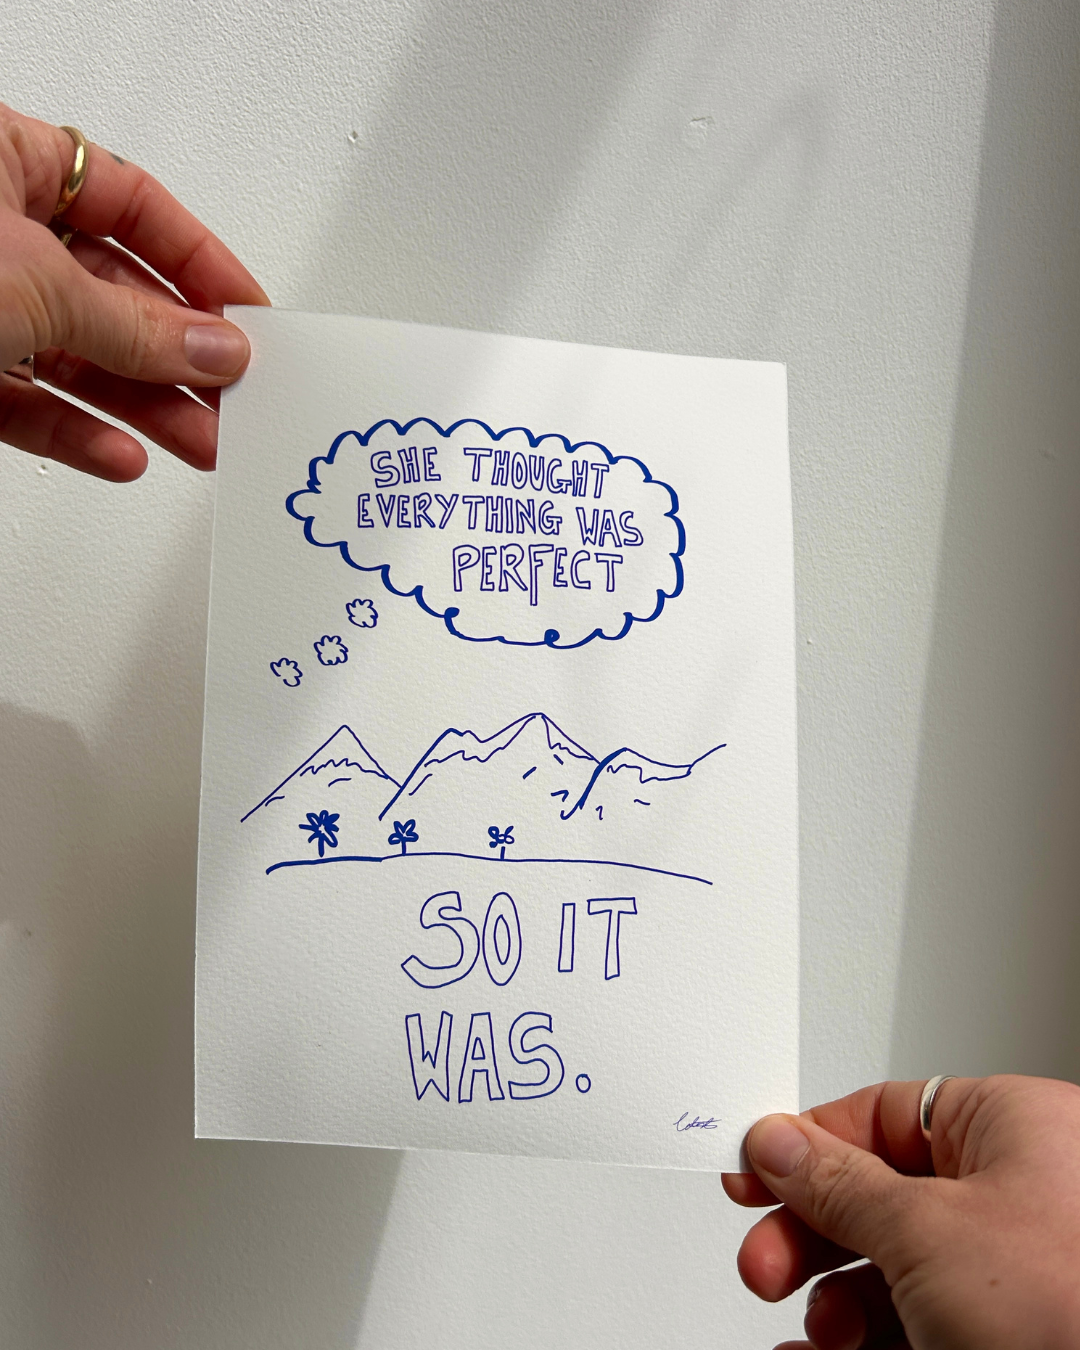 SHE THOUGHT
EVERYTHING WAS
PERFECT
SO IT
WAS.